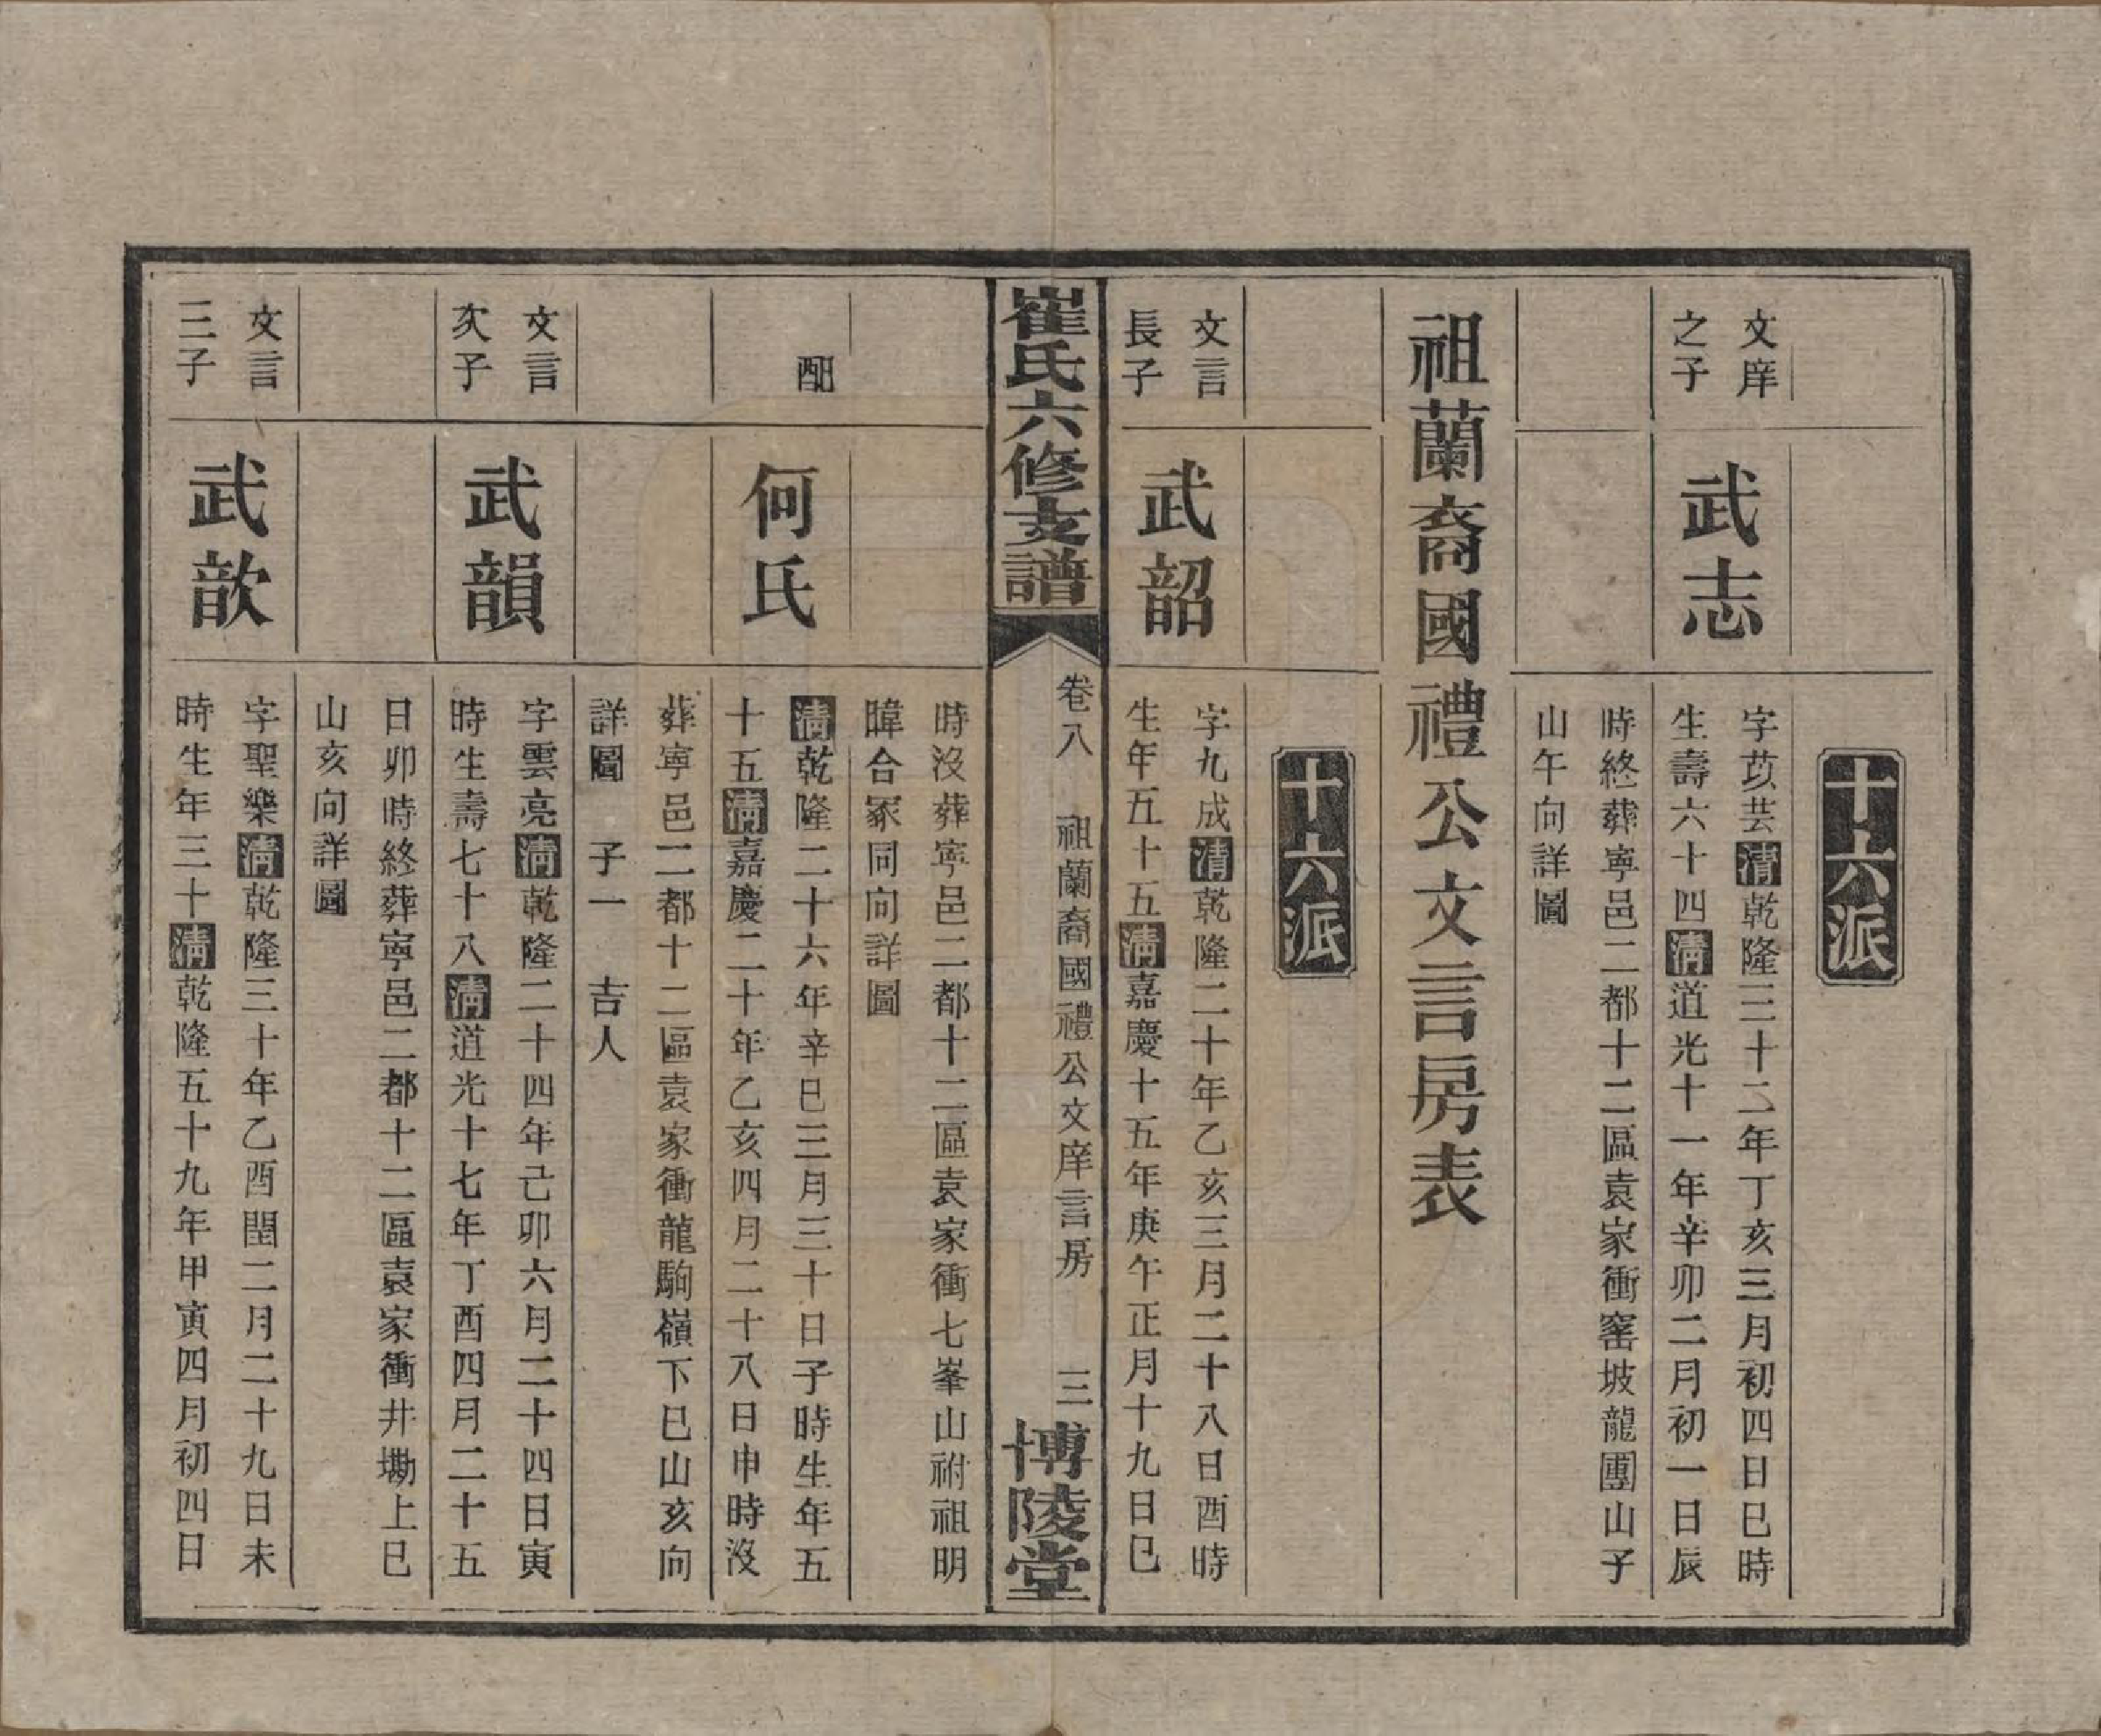 十六派
文庠
之子
武志
字苡芸清乾隆三十二年丁亥三月初四日巳時
生壽六十四清道光十一年辛卯二月初一日辰
時終葬寧邑二都十二區袁家衝窰坡龍團山子
山午向詳圖
祖蘭裔國禮公文言房表
十六派
文言
長子
武韶
字九成清乾隆二十年乙亥三月二十八日酉時
生年五十五清嘉慶十五年庚午正月十九日巳
崔氏六修支譜
卷八 祖蘭裔國禮公文庠言房 三
博陵堂
時沒葬寧邑二都十二區袁家衝七峯山祔祖明
暐合冢同向詳圖
配
何氏
清乾隆二十六年辛巳三月三十日子時生年五
十五清嘉慶二十年乙亥四月二十八日申時沒
葬寧邑二都十二區袁家衝龍駒嶺下巳山亥向
詳圖 子一 吉人
文言
次子
武韻
字雲亮清乾隆二十四年己卯六月二十四日寅
時生壽七十八清道光十七年丁酉四月二十五
日卯時終葬寧邑二都十二區袁家衝井墈上巳
山亥向詳圖
文言
三子
武歆
字聖樂清乾隆三十年乙酉閏二月二十九日未
時生年三十清乾隆五十九年甲寅四月初四日